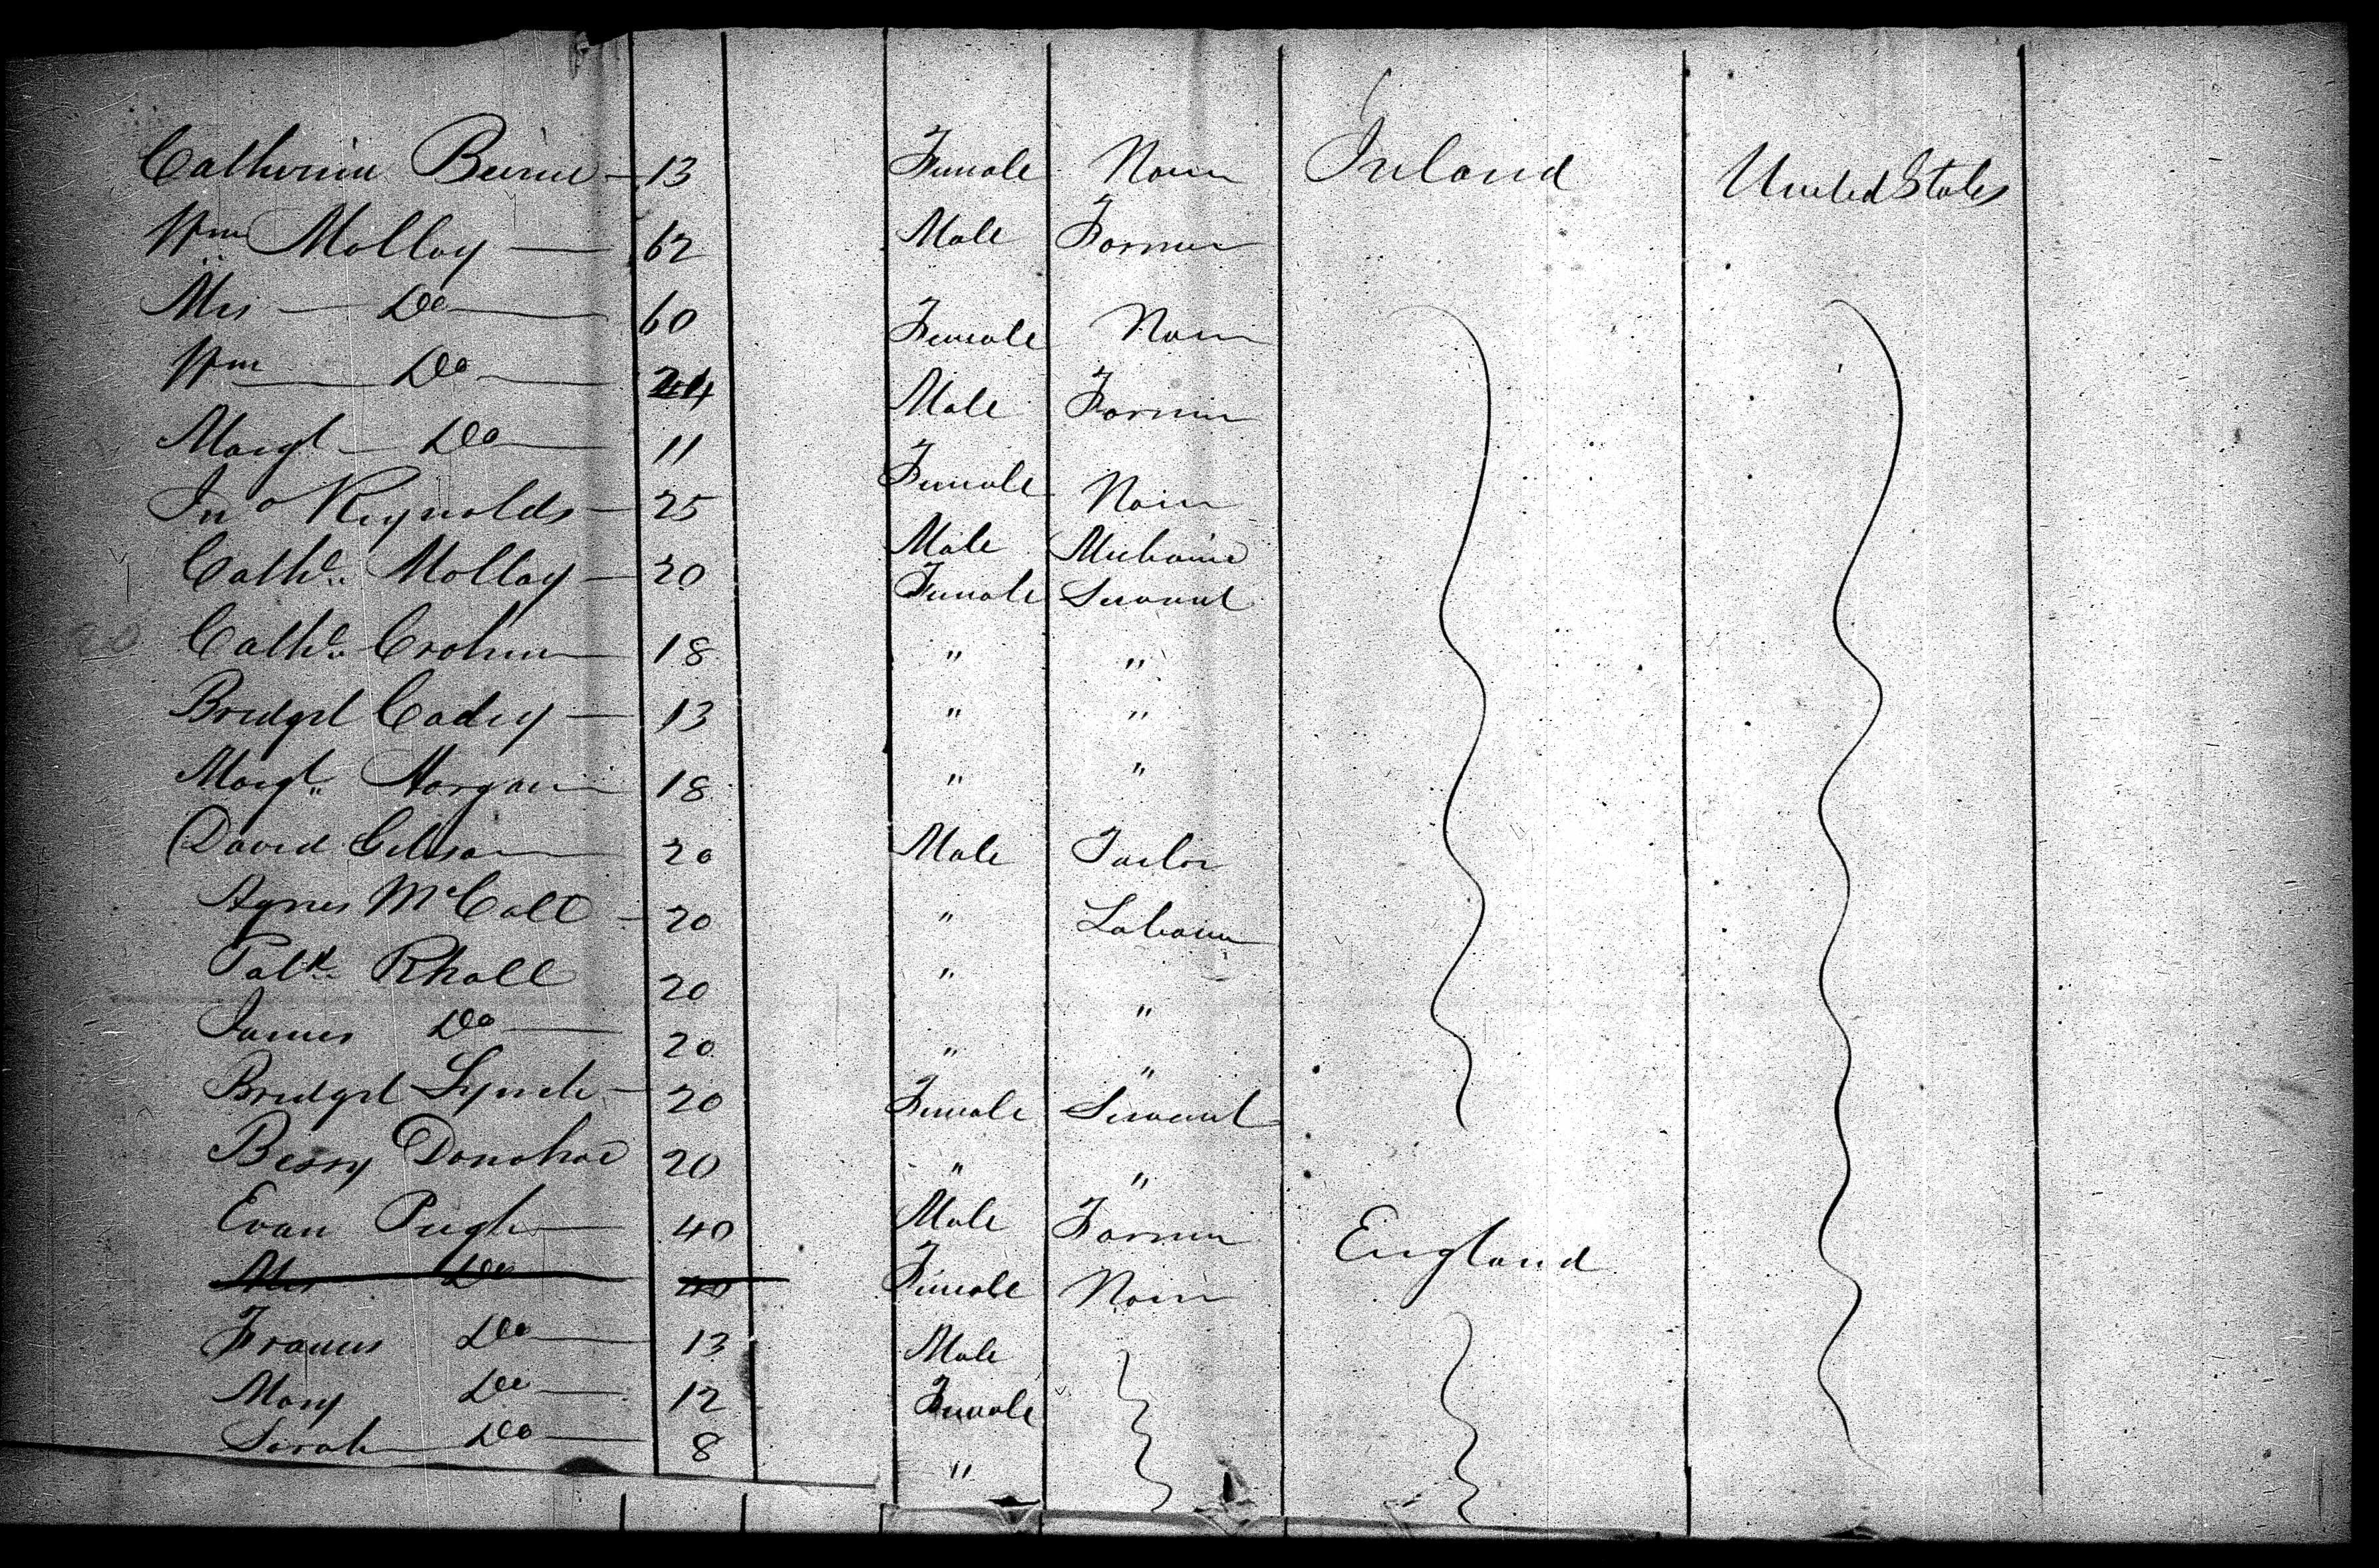 Catherine Beirne 13 Female None Ireland United States
Wm Molloy 62 Male Farmer
Mrs Do 60 Female None
Wm Do 24 Male Farmer
Margt Do 11 Female None
Jno Reynolds 25 Male Mechanic
Cathe Molloy 20 Female Servant
Cathe Crohun 18 " "
Bridget Cadey 13 " "
Margt Horgan 18 " "
David Gibson 20 Male Tailor
Agnes McCall 20 " Labourer
Patk Rhall 20 " "
James Do 20 " "
Bridget Lynch 20 Female Servant
Bessy Donohoe 20 " "
Evan Pugh 40 Male Farmer England
Mrs Do 40 Female None
Francis Do 13 Male
Mary Do 12 Female
Sarah Do 8 "